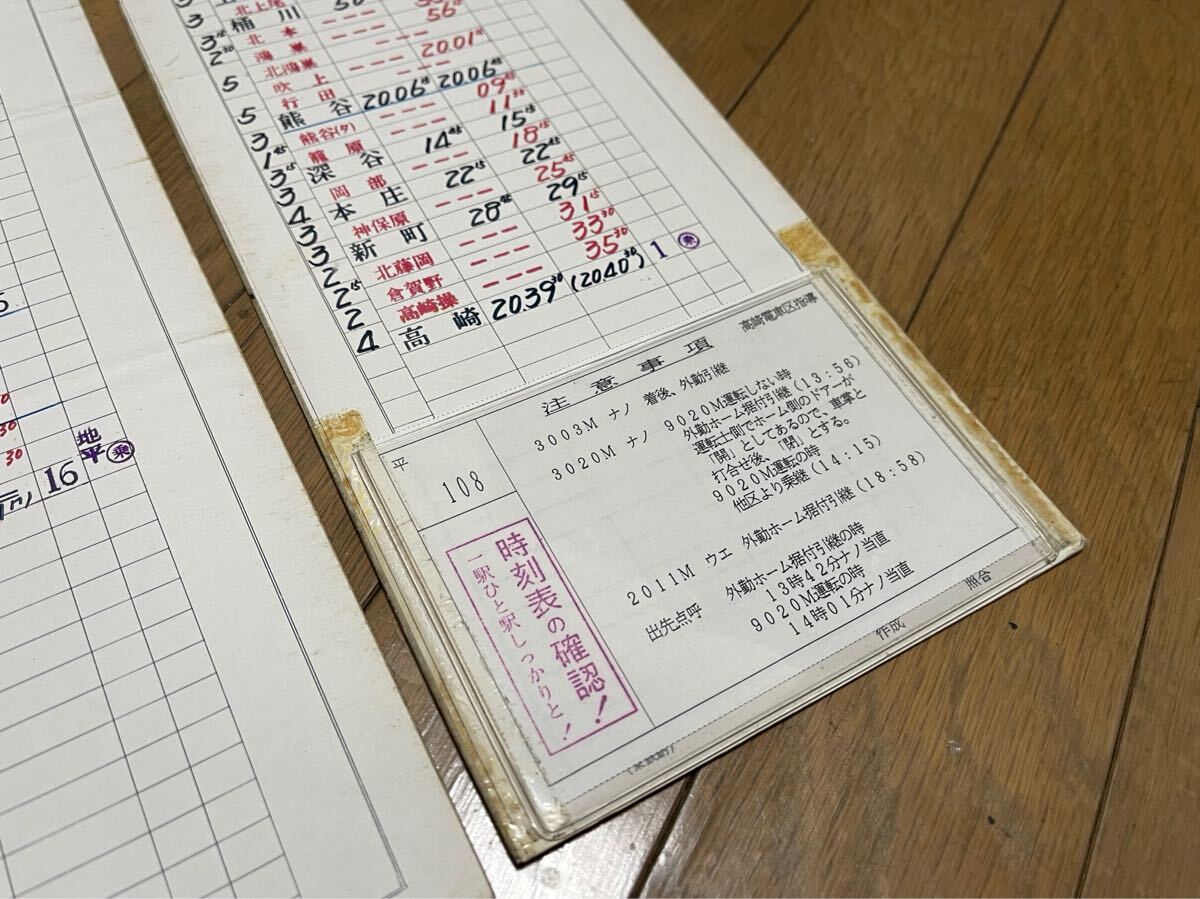 3 北上尾
3 桶川
3 45 北本 --- 56 45
2 30 鴻巣
北鴻巣 --- 20.01 45
5 吹上
行田
5 熊谷 20.06 45 20.06 45
熊谷(タ) --- 09
3 籠原 --- 11 30
1 45 深谷 14 45 15 15
3 15 岡部 --- 18 15
3 本庄 22 15 22 45
4 神保原 --- 25 45
3 新町 28 45 29 15
3 北藤岡 --- 31 15
2 倉賀野 --- 33 30
2 15 高崎操 --- 35 30
2
4 高崎 20.39 30 (20.40 30) 1 乗
高崎電車区指導
注意事項
平 108
3003M ナノ 着後、外勤引継
3020M ナノ 9020M運転しない時
外勤ホーム据付引継(13:56)
運転士側でホーム側のドアーが
「開」としてあるので、車掌と
打合せ後、「閉」とする。
9020M運転の時
他区より乗継(14:15)
2011M ウエ 外勤ホーム据付引継(18:58)
出先点呼 外勤ホーム据付引継の時
13時42分ナノ当直
9020M運転の時
14時01分ナノ当直
作成
照合
時刻表の確認!
一駅ひと駅しっかりと!
30
30
16 地平 乗